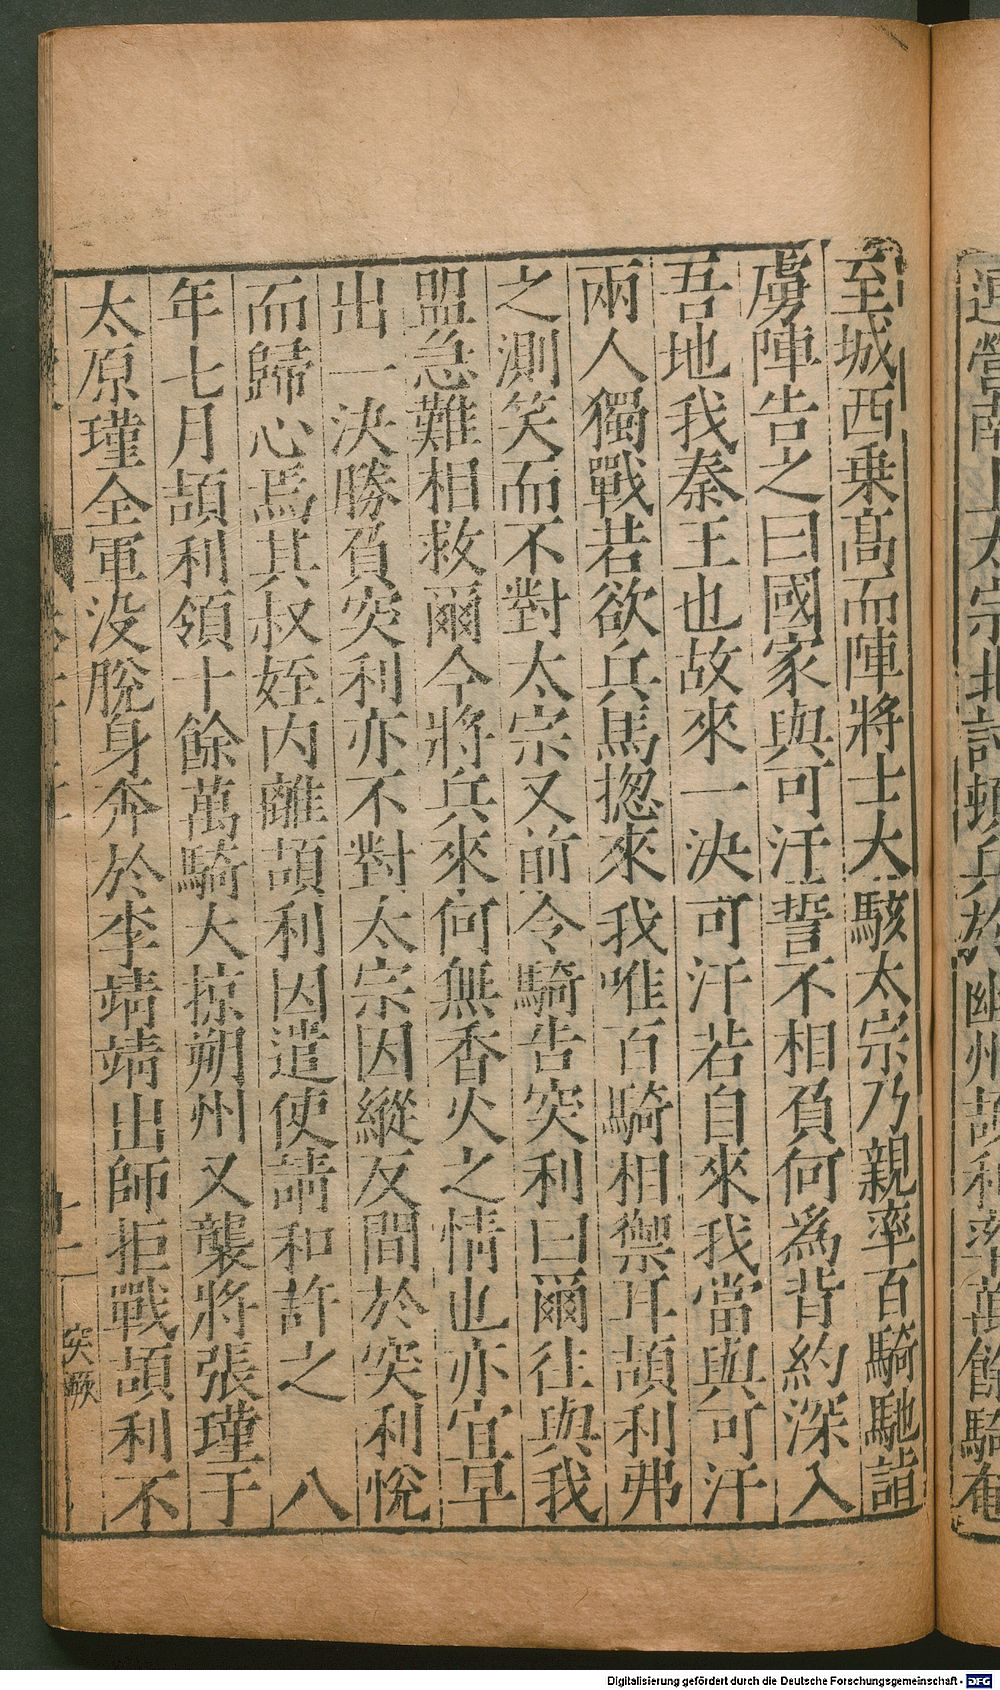 至城西乗髙而陣將士大駭太宗乃親率百騎馳詣
虜陣告之曰國家與可汗誓不相負何為背約深入
吾地我秦王也故來一決可汗若自來我當與可汗
兩人獨戰若欲兵馬揔來我唯百騎相禦耳頡利弗
之測笑而不對太宗又前令騎告突利曰爾往與我
盟急難相救爾今將兵來何無香火之情也亦宜早
出一決勝負突利亦不對太宗因縱反間於突利悅
而歸心焉其叔姪内離頡利因遣使請和許之 八
年七月頡利領十餘萬騎大掠朔州又襲將張瑾于
太原瑾全軍没脫身奔於李靖靖出師拒戰頡利不
十一
突厥
Digitalisierung gefördert durch die Deutsche Forschungsgemeinschaft - DFG